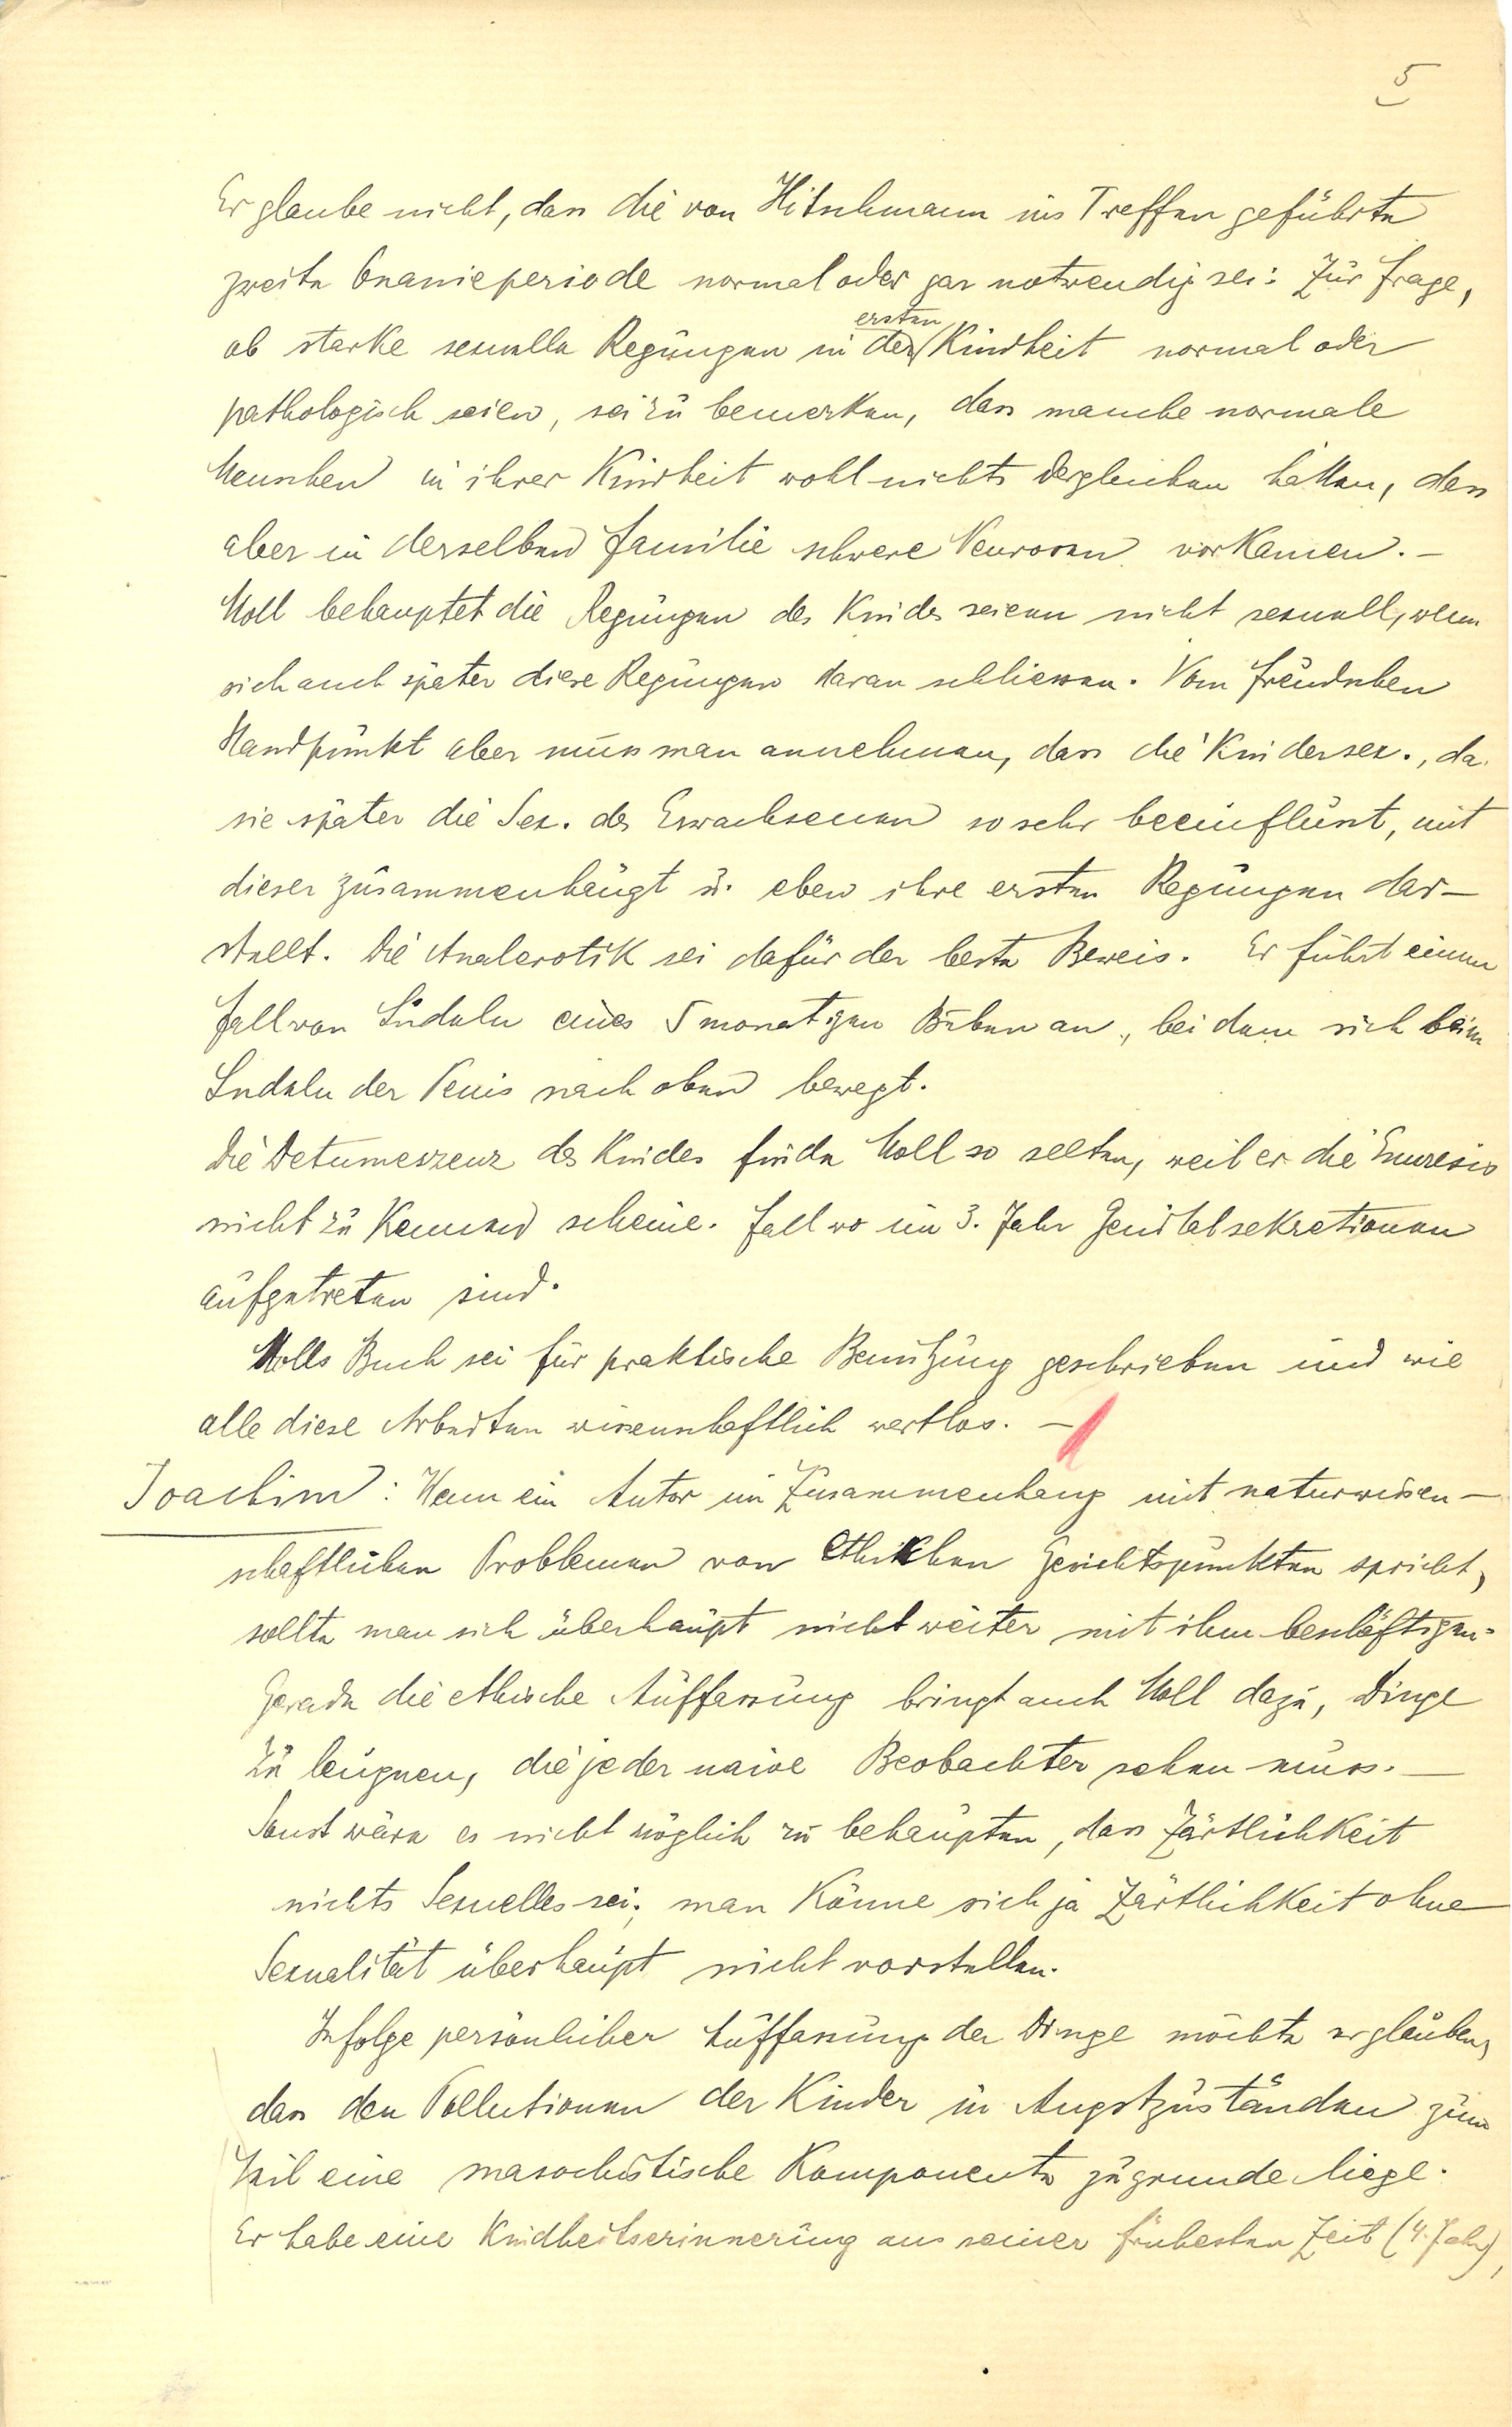 5
Er glaube nicht, dass die von Hitschmann ins Treffen geführte
zweite Onanieperiode normal oder gar notwendig sei: Zur Frage,
ob starke sexuelle Regungen in der ersten Kindheit normal oder
pathologisch seien, sei zu bemerken, dass manche normale
Menschen in ihrer Kindheit wohl nichts dergleichen hätten, dass
aber in derselben Familie schwere Neurosen vorkamen. –
Moll behauptet die Regungen des Kindes seien nicht sexuell, wenn
sich auch später diese Regungen daran schliessen. Vom Freudschen
Standpunkt aber muss man annehmen, dass die Kindersex., da
sie später die Sex. des Erwachsenen so sehr beeinflusst, mit
dieser zusammenhängt u. eben ihre ersten Regungen dar–
stellt. Die Analerotik sei dafür der beste Beweis. Er führt einen
Fall von Ludeln eines 5 monatigen Buben an, bei dem sich beim
Ludeln der Penis nach oben bewegt.
Die Detumeszenz des Kindes finde Moll so selten, weil er die Enuresis
nicht zu kennen scheine. Fall wo im 3. Jahr Genitalsekretionen
aufgetreten sind.
Molls Buch sei für praktische Benützung geschrieben und wie
alle diese Arbeiten wissenschaftlich wertlos. –
Joachim: Wenn ein Autor im Zusammenhang mit naturwissen–
schaftlichen Problemen von ethischen Gesichtspunkten spricht,
sollte man sich überhaupt nicht weiter mit ihm beschäftigen.
Gerade die ethische Auffassung bringt auch Moll dazu, Dinge
zu leugnen, die jeder naive Beobachter sehen muss. –
Sonst wäre es nicht möglich zu behaupten, dass Zärtlichkeit
nichts Sexuelles sei; man könne sich ja Zärtlichkeit ohne
Sexualität überhaupt nicht vorstellen.
Infolge persönlicher Auffassung der Dinge möchte er glauben,
dass den Pollutionen der Kinder in Angstzuständen zum
Teil eine masochistische Komponente zugrunde liege.
Er habe eine Kindheitserinnerung aus seiner frühesten Zeit (4. Jahr),